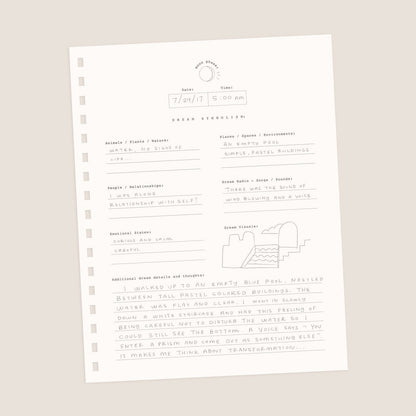 Date:
Time:
7/29/17
5:00 AM
DREAM SYMBOLISM:
Animals / Plants / Nature:
WATER. NO SIGNS OF
LIFE...
Places / Spaces / Environments:
AN EMPTY POOL
SIMPLE, PASTEL BUILDINGS
People / Relationships:
I WAS ALONE
RELATIONSHIP WITH SELF?
Songs / Sounds:
THERE WAS THE SOUND OF
WIND BLOWING AND A VOICE
Emotional States:
CURIOUS AND CALM
CAREFUL
Dream Visuals:
Additional dream details and thoughts:
I WALKED UP TO AN EMPTY BLUE POOL NESTLED
BETWEEN TALL PASTEL COLORED BUILDINGS. THE
WATER WAS FLAT AND CLEAR. I WENT IN SLOWLY
DOWN A WHITE STAIRCASE AND HAD THIS FEELING OF
BEING CAREFUL NOT TO DISTURB THE WATER SO I
COULD STILL SEE THE BOTTOM. A VOICE SAYS "YOU
ENTER A PRISM AND COME OUT AS SOMETHING ELSE".
IT MAKES ME THINK ABOUT TRANSFORMATION...